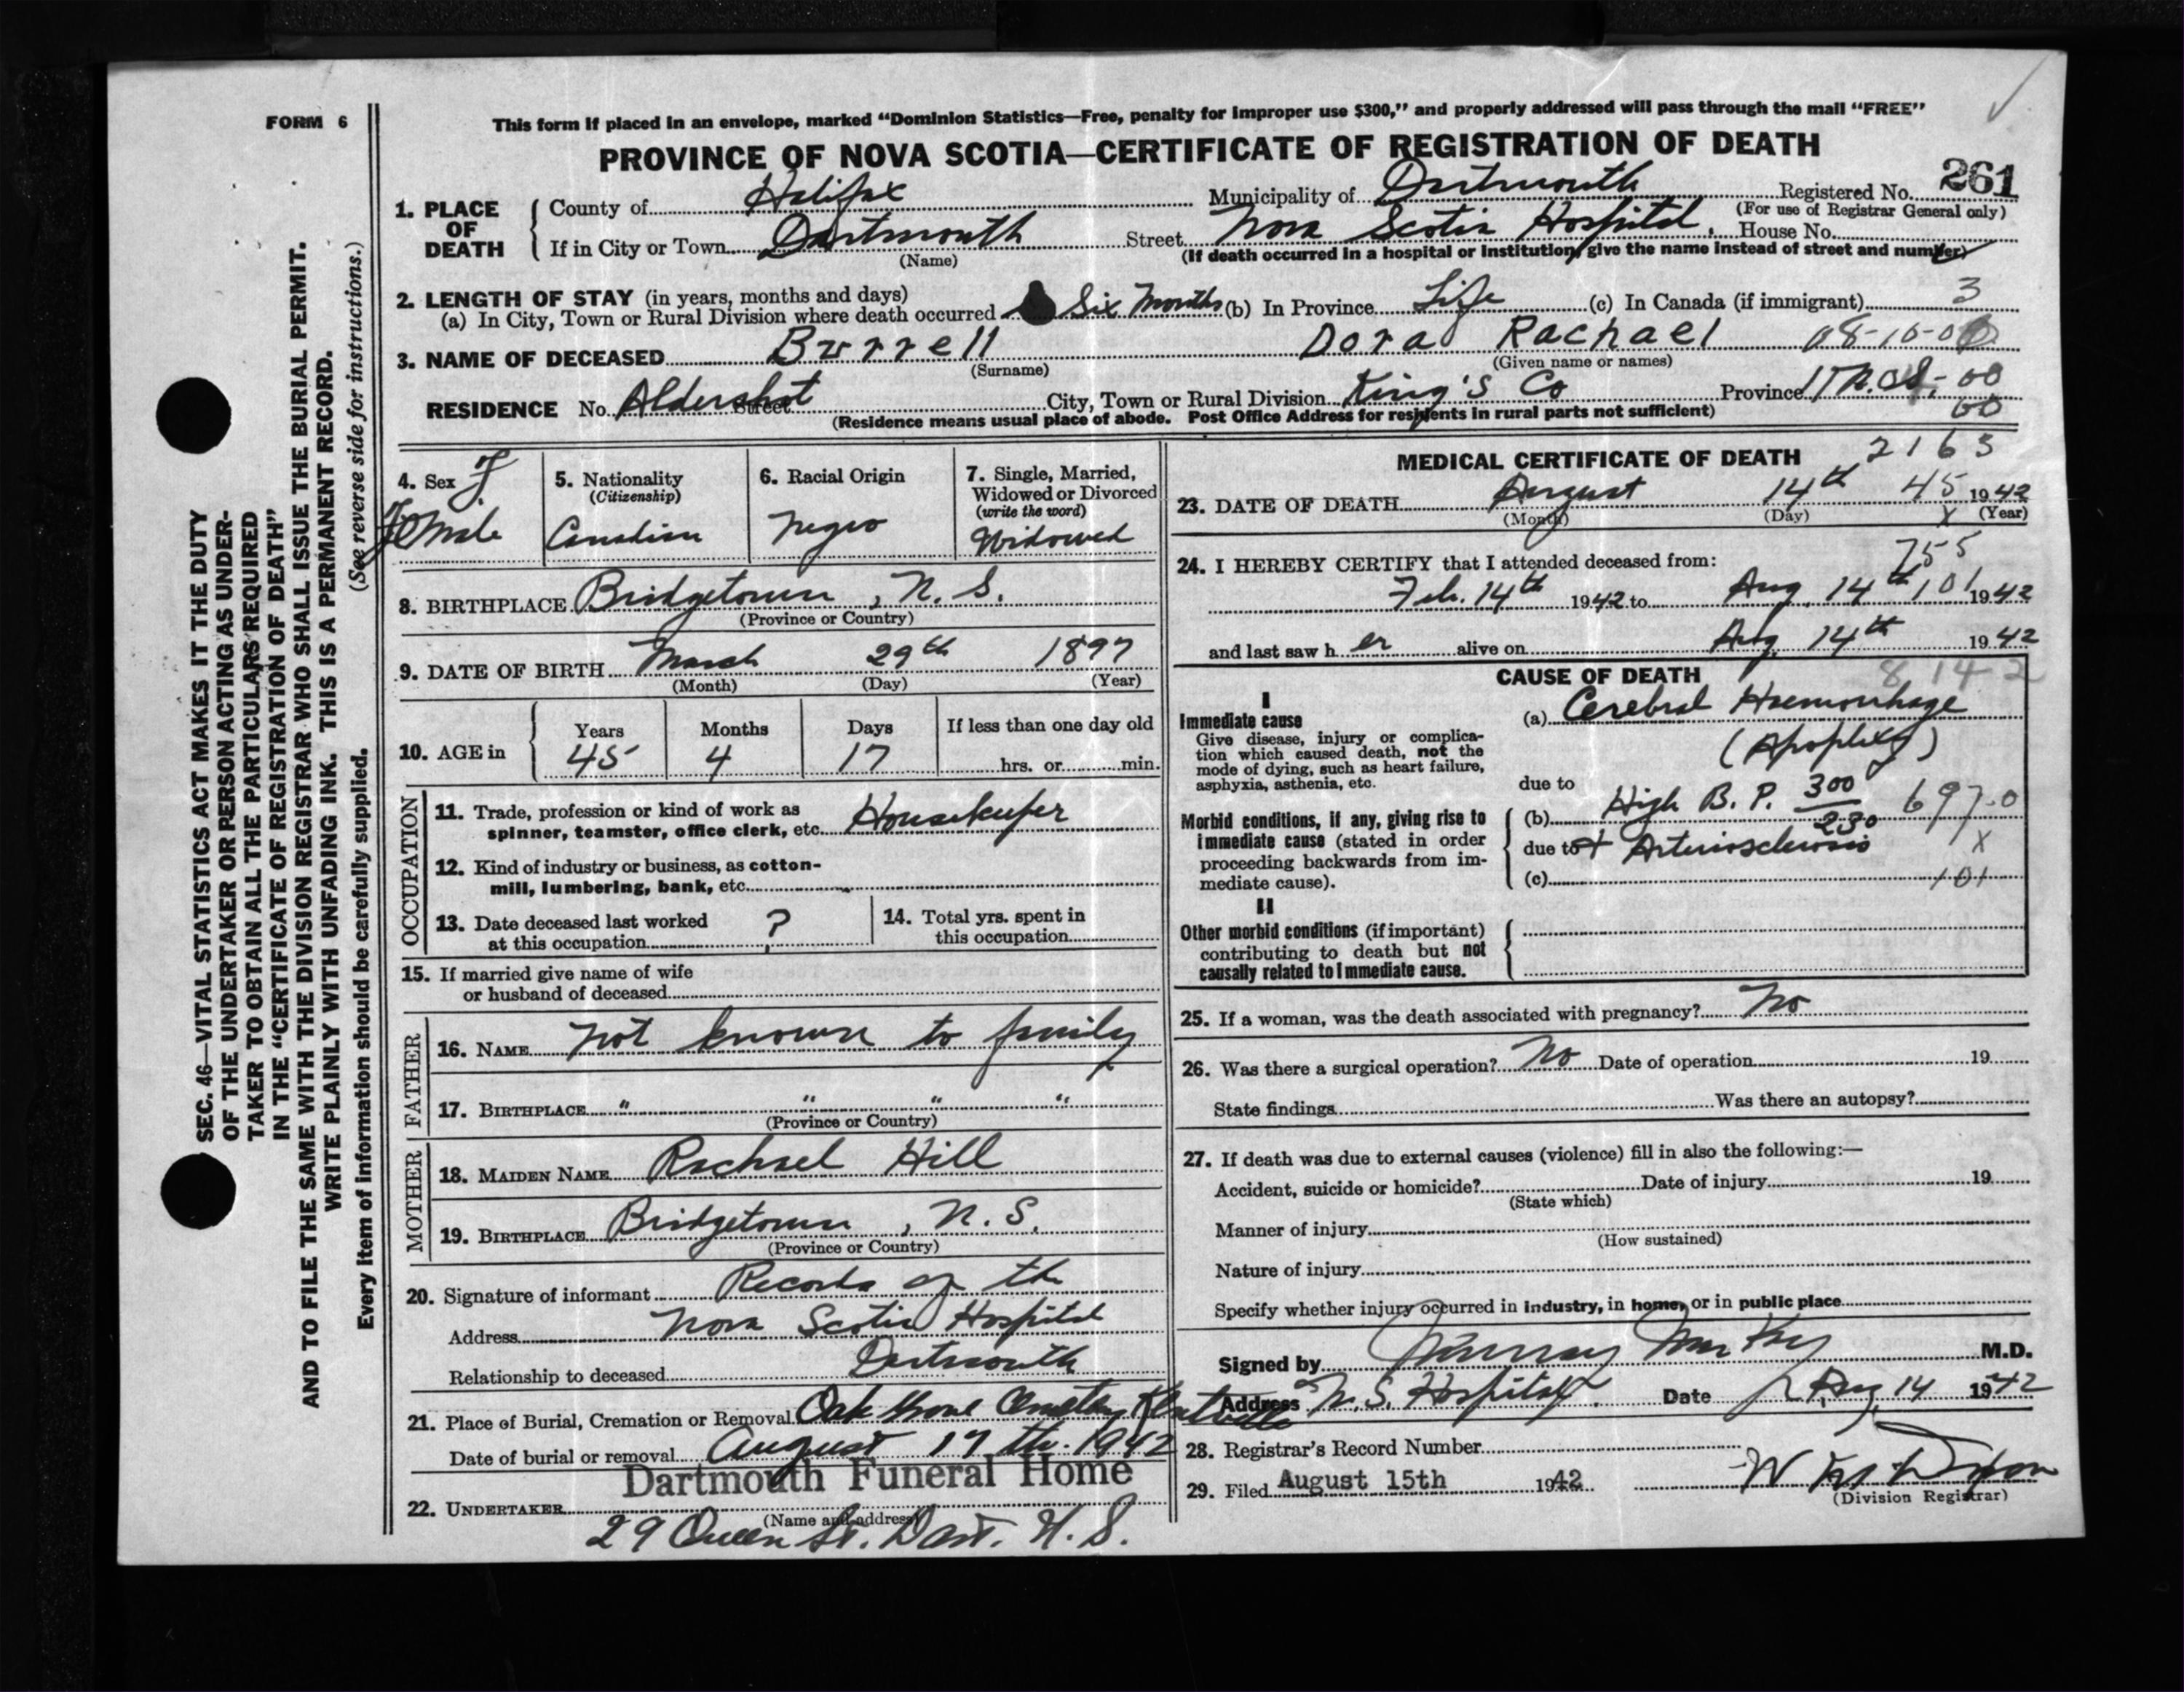 FORM 6
This form if placed in an envelope, marked “Dominion Statistics—Free, penalty for improper use $300,” and properly addressed will pass through the mail “FREE”
PROVINCE OF NOVA SCOTIA—CERTIFICATE OF REGISTRATION OF DEATH
261
1. PLACE OF DEATH County of Halifax Municipality of Dartmouth Registered No.
(For use of Registrar General only)
If in City or Town Dartmouth Street Nova Scotia Hospital, House No.
(Name) (If death occurred in a hospital or institution, give the name instead of street and number)
2. LENGTH OF STAY (in years, months and days)
(a) In City, Town or Rural Division where death occurred Six Months (b) In Province Life (c) In Canada (if immigrant) 3
3. NAME OF DECEASED Burrell Dora Rachael 08-10-00
(Surname) (Given name or names)
RESIDENCE No. Aldershot Street City, Town or Rural Division King's Co Province N.S. 00
(Residence means usual place of abode. Post Office Address for residents in rural parts not sufficient) 60
4. Sex f Female
5. Nationality (Citizenship) Canadian
6. Racial Origin Negro
7. Single, Married, Widowed or Divorced (write the word) Widowed
8. BIRTHPLACE Bridgetown, N. S.
(Province or Country)
9. DATE OF BIRTH March 29th 1897
(Month) (Day) (Year)
10. AGE in Years Months Days If less than one day old
45 4 17 hrs. or min.
OCCUPATION
11. Trade, profession or kind of work as
spinner, teamster, office clerk, etc. Housekeeper
12. Kind of industry or business, as cotton-
mill, lumbering, bank, etc.
13. Date deceased last worked
at this occupation ?
14. Total yrs. spent in
this occupation
15. If married give name of wife
or husband of deceased
FATHER
16. NAME not known to family
17. BIRTHPLACE " " " "
(Province or Country)
MOTHER
18. MAIDEN NAME Rachael Hill
19. BIRTHPLACE Bridgetown, N. S.
(Province or Country)
20. Signature of informant Records of the
Address Nova Scotia Hospital
Relationship to deceased Dartmouth
21. Place of Burial, Cremation or Removal Oak Grove Cemetery Kentville
Date of burial or removal August 17th. 1942
Dartmouth Funeral Home
22. UNDERTAKER
(Name and address)
29 Queen St. Dart. N. S.
MEDICAL CERTIFICATE OF DEATH 2163
23. DATE OF DEATH August 14th 45 1942
(Month) (Day) x (Year)
755
24. I HEREBY CERTIFY that I attended deceased from:
Feb. 14th 1942 to Aug. 14th 101 1942
and last saw h er alive on Aug. 14th 1942
CAUSE OF DEATH 8 14 2
I
Immediate cause (a) Cerebral Haemorrhage
Give disease, injury or complica-
tion which caused death, not the (Apoplexy)
mode of dying, such as heart failure,
asphyxia, asthenia, etc. due to
Morbid conditions, if any, giving rise to (b) High B. P. 300/230 697-0
immediate cause (stated in order due to + Arteriosclerosis x
proceeding backwards from im-
mediate cause). (c) 101
II
Other morbid conditions (if important)
contributing to death but not
causally related to immediate cause.
25. If a woman, was the death associated with pregnancy? No
26. Was there a surgical operation? No Date of operation 19
State findings Was there an autopsy?
27. If death was due to external causes (violence) fill in also the following:—
Accident, suicide or homicide? Date of injury 19
(State which)
Manner of injury
(How sustained)
Nature of injury
Specify whether injury occurred in industry, in home, or in public place
Signed by Murray MacKay M.D.
Address N.S. Hospital. Date Aug. 14 1942
28. Registrar's Record Number
29. Filed August 15th 1942
(Division Registrar)
SEC. 46—VITAL STATISTICS ACT MAKES IT THE DUTY
OF THE UNDERTAKER OR PERSON ACTING AS UNDER-
TAKER TO OBTAIN ALL THE PARTICULARS REQUIRED
IN THE “CERTIFICATE OF REGISTRATION OF DEATH”
AND TO FILE THE SAME WITH THE DIVISION REGISTRAR WHO SHALL ISSUE THE BURIAL PERMIT.
WRITE PLAINLY WITH UNFADING INK. THIS IS A PERMANENT RECORD.
Every item of information should be carefully supplied. (See reverse side for instructions.)